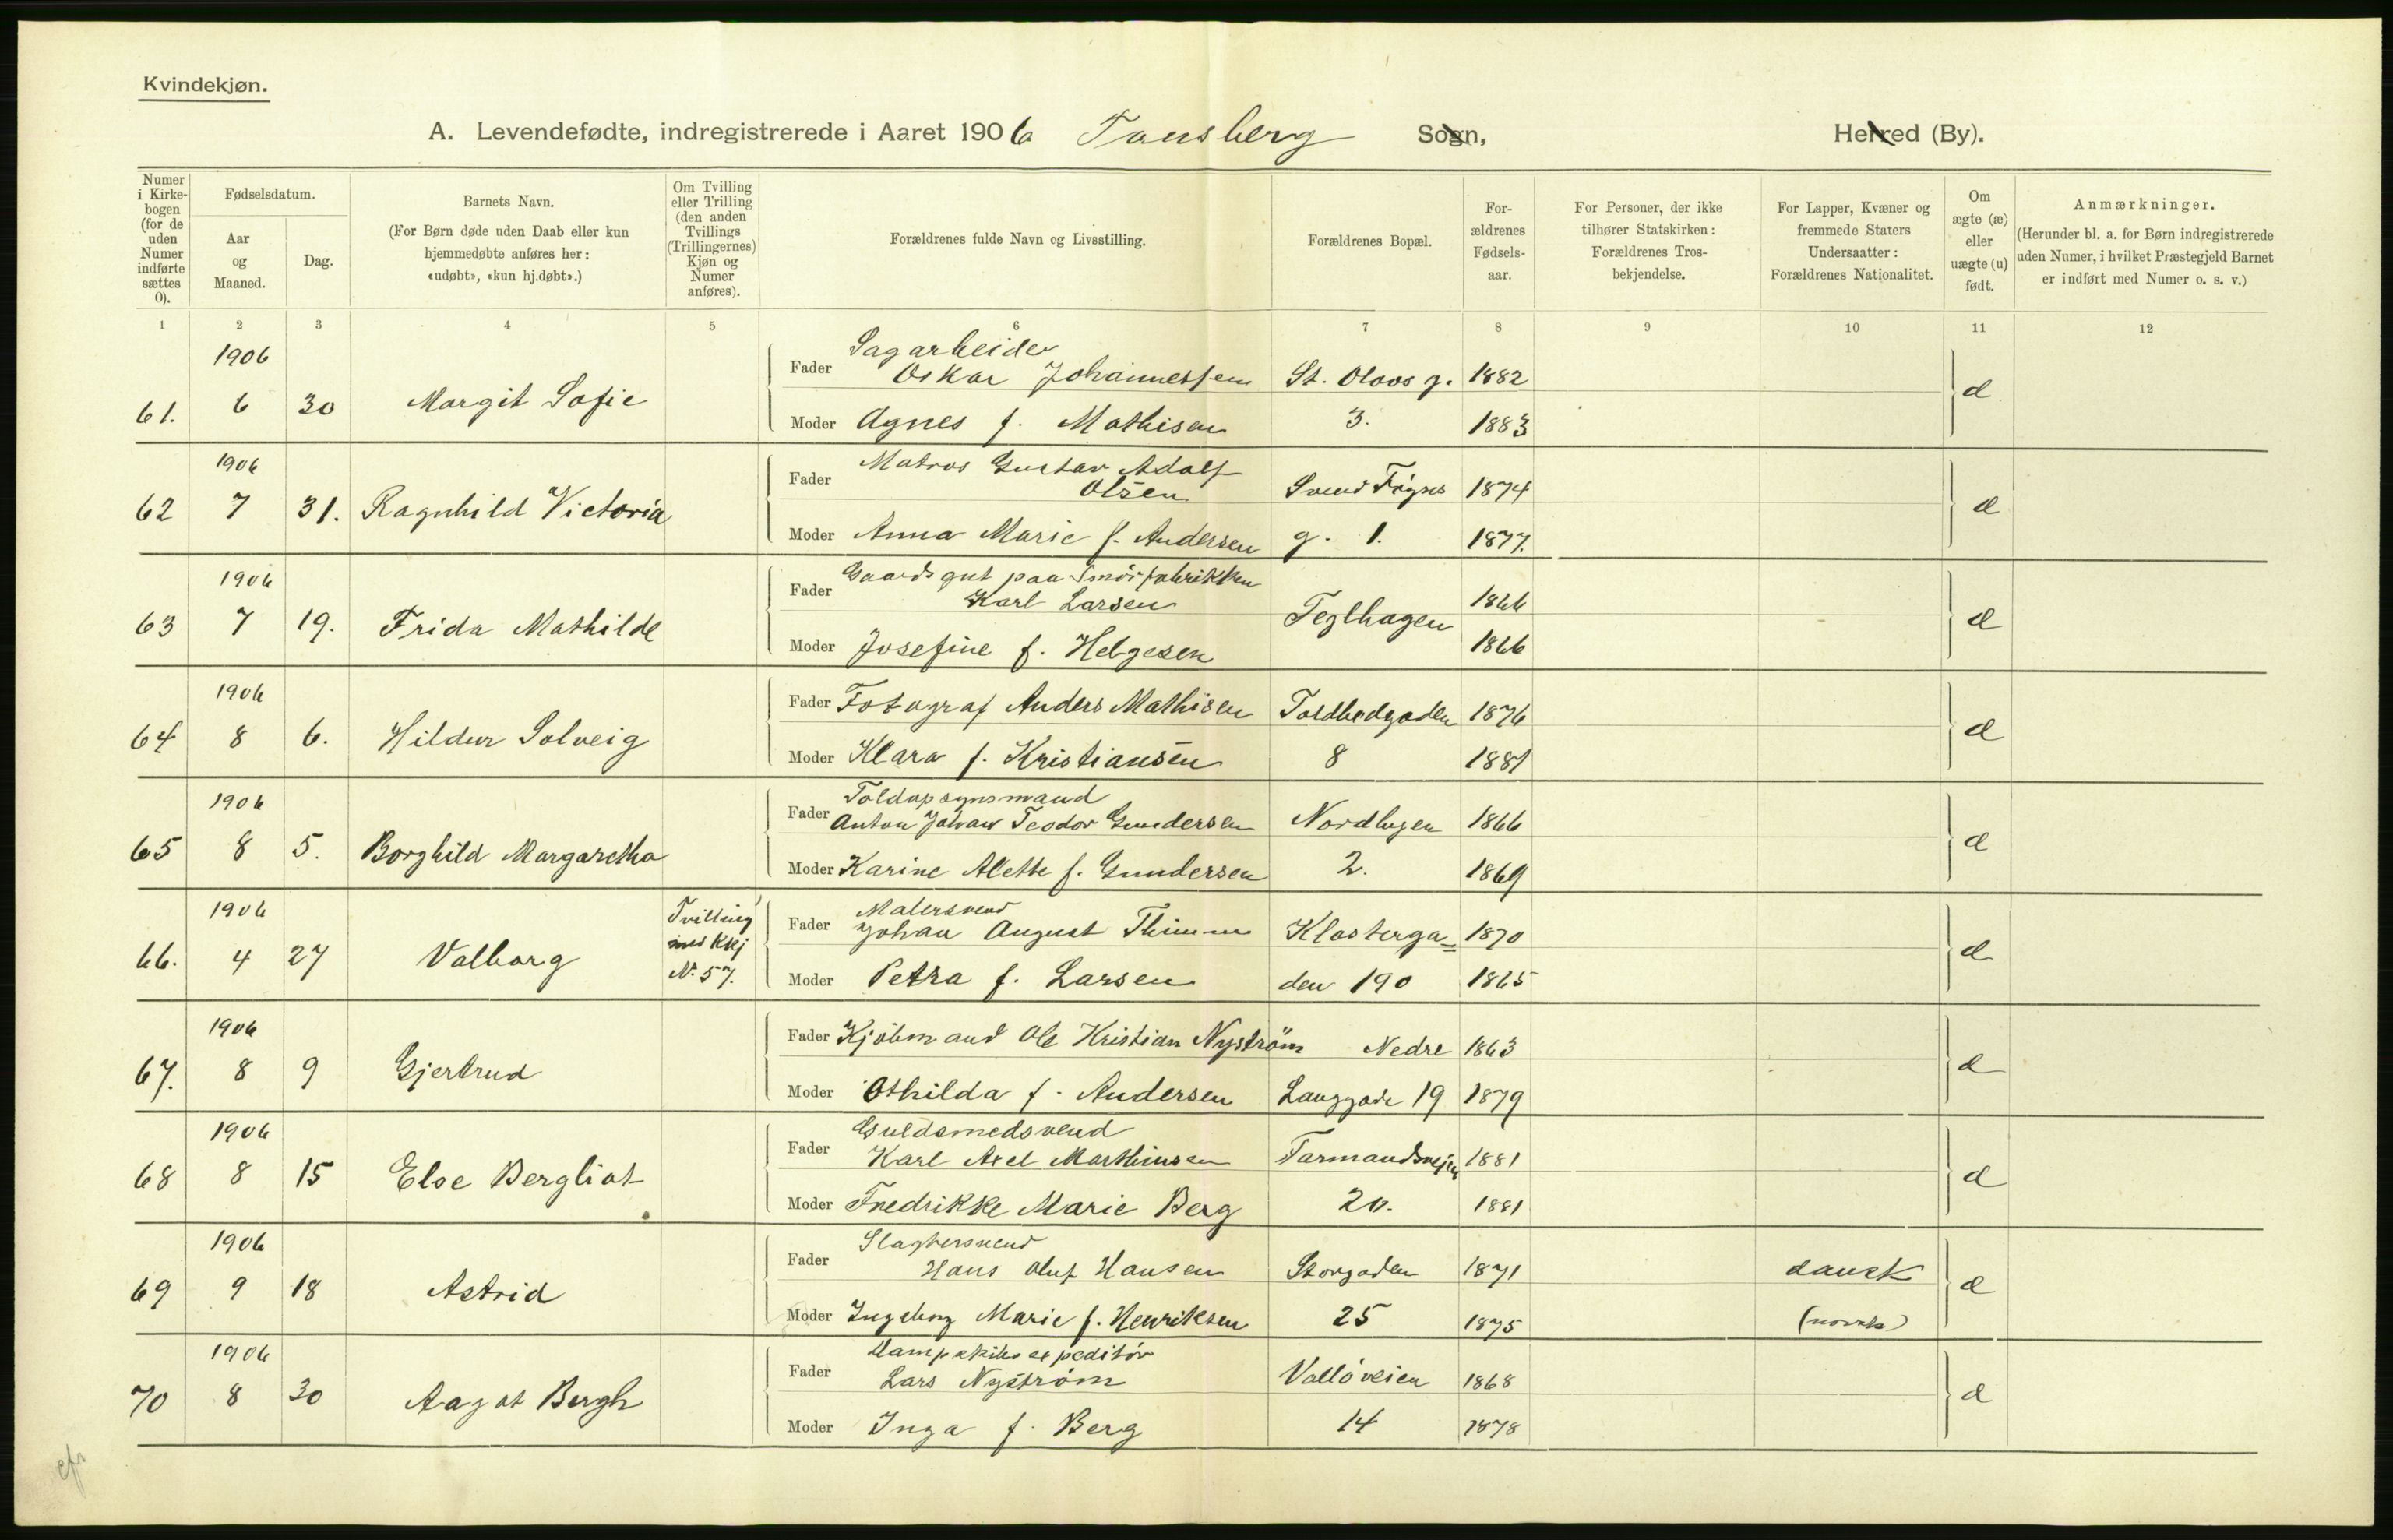 Kvindekjøn.
A. Levendefødte, indregistrerede i Aaret 1906 Tønsberg Sogn, Herred (By).
Numer i Kirkebogen (for de uden Numer indførte sættes 0).
Fødselsdatum.
Aar og Maaned.
Dag.
Barnets Navn.
(For Børn døde uden Daab eller kun hjemmedøbte anføres her: «udøbt», «kun hj.døbt».)
Om Tvilling eller Trilling (den anden Tvillings (Trillingernes) Kjøn og Numer anføres).
Forældrenes fulde Navn og Livsstilling.
Forældrenes Bopæl.
Forældrenes Fødselsaar.
For Personer, der ikke tilhører Statskirken: Forældrenes Trosbekjendelse.
For Lapper, Kvæner og fremmede Staters Undersaatter: Forældrenes Nationalitet.
Om ægte (æ) eller uægte (u) født.
Anmærkninger.
(Herunder bl. a. for Børn indregistrerede uden Numer, i hvilket Præstegjeld Barnet er indført med Numer o. s. v.)
1 2 3 4 5 6 7 8 9 10 11 12
1906 Sagarbeider
Fader Oskar Johannessen St. Olavs g. 1882
61. 6 30 Margit Sofie æ
Moder Agnes f. Mathisen 3. 1883
1906 Matros Gustav Adolf
Fader Olsen Svend Føyns 1874
62 7 31. Ragnhild Victoria æ
Moder Anna Marie f. Andersen g. 1. 1877.
1906 Gaardsgut paa Smörfabrikken
Fader Karl Larsen 1866
63 7 19. Frida Mathilde Teglhagen æ
Moder Josefine f. Helgesen 1866
1906 Fader Fotograf Anders Mathisen Toldbodgaden 1876
64 8 6. Hildur Solveig æ
Moder Klara f. Kristiansen 8 1881
1906 Toldopsynsmand
Fader Anton Johan Teodor Gundersen Nordbyen 1866
65 8 5. Borghild Margaretha æ
Moder Karine Alette f. Gundersen 2. 1869
1906 Tvilling Malersvend
Fader Johan August Thimm Klosterga= 1870
66. 4 27 Valborg med Kkj æ
N. 57. Moder Petra f. Larsen den 190 1865
1906 Fader Kjöbmand Ole Kristian Nyström Nedre 1863
67. 8 9 Gjertrud æ
Moder Othilda f. Andersen Langgade 19 1879
1906 Guldsmedsvend
Fader Karl Axel Marthinsen Farmandsvejen 1881
68 8 15 Else Bergliot æ
Moder Fredrikke Marie Berg 20. 1881
1906 Slagtersvend
Fader Hans Oluf Hansen Storgaden 1871 dansk
69 9 18 Astrid æ
Moder Ingeborg Marie f. Henriksen 25 1875 (norsk)
1906 Dampskibsexpeditör
Fader Lars Nyström Vallöveien 1868
70 8 30 Aagot Bergh æ
Moder Inga f. Berg 14 1878